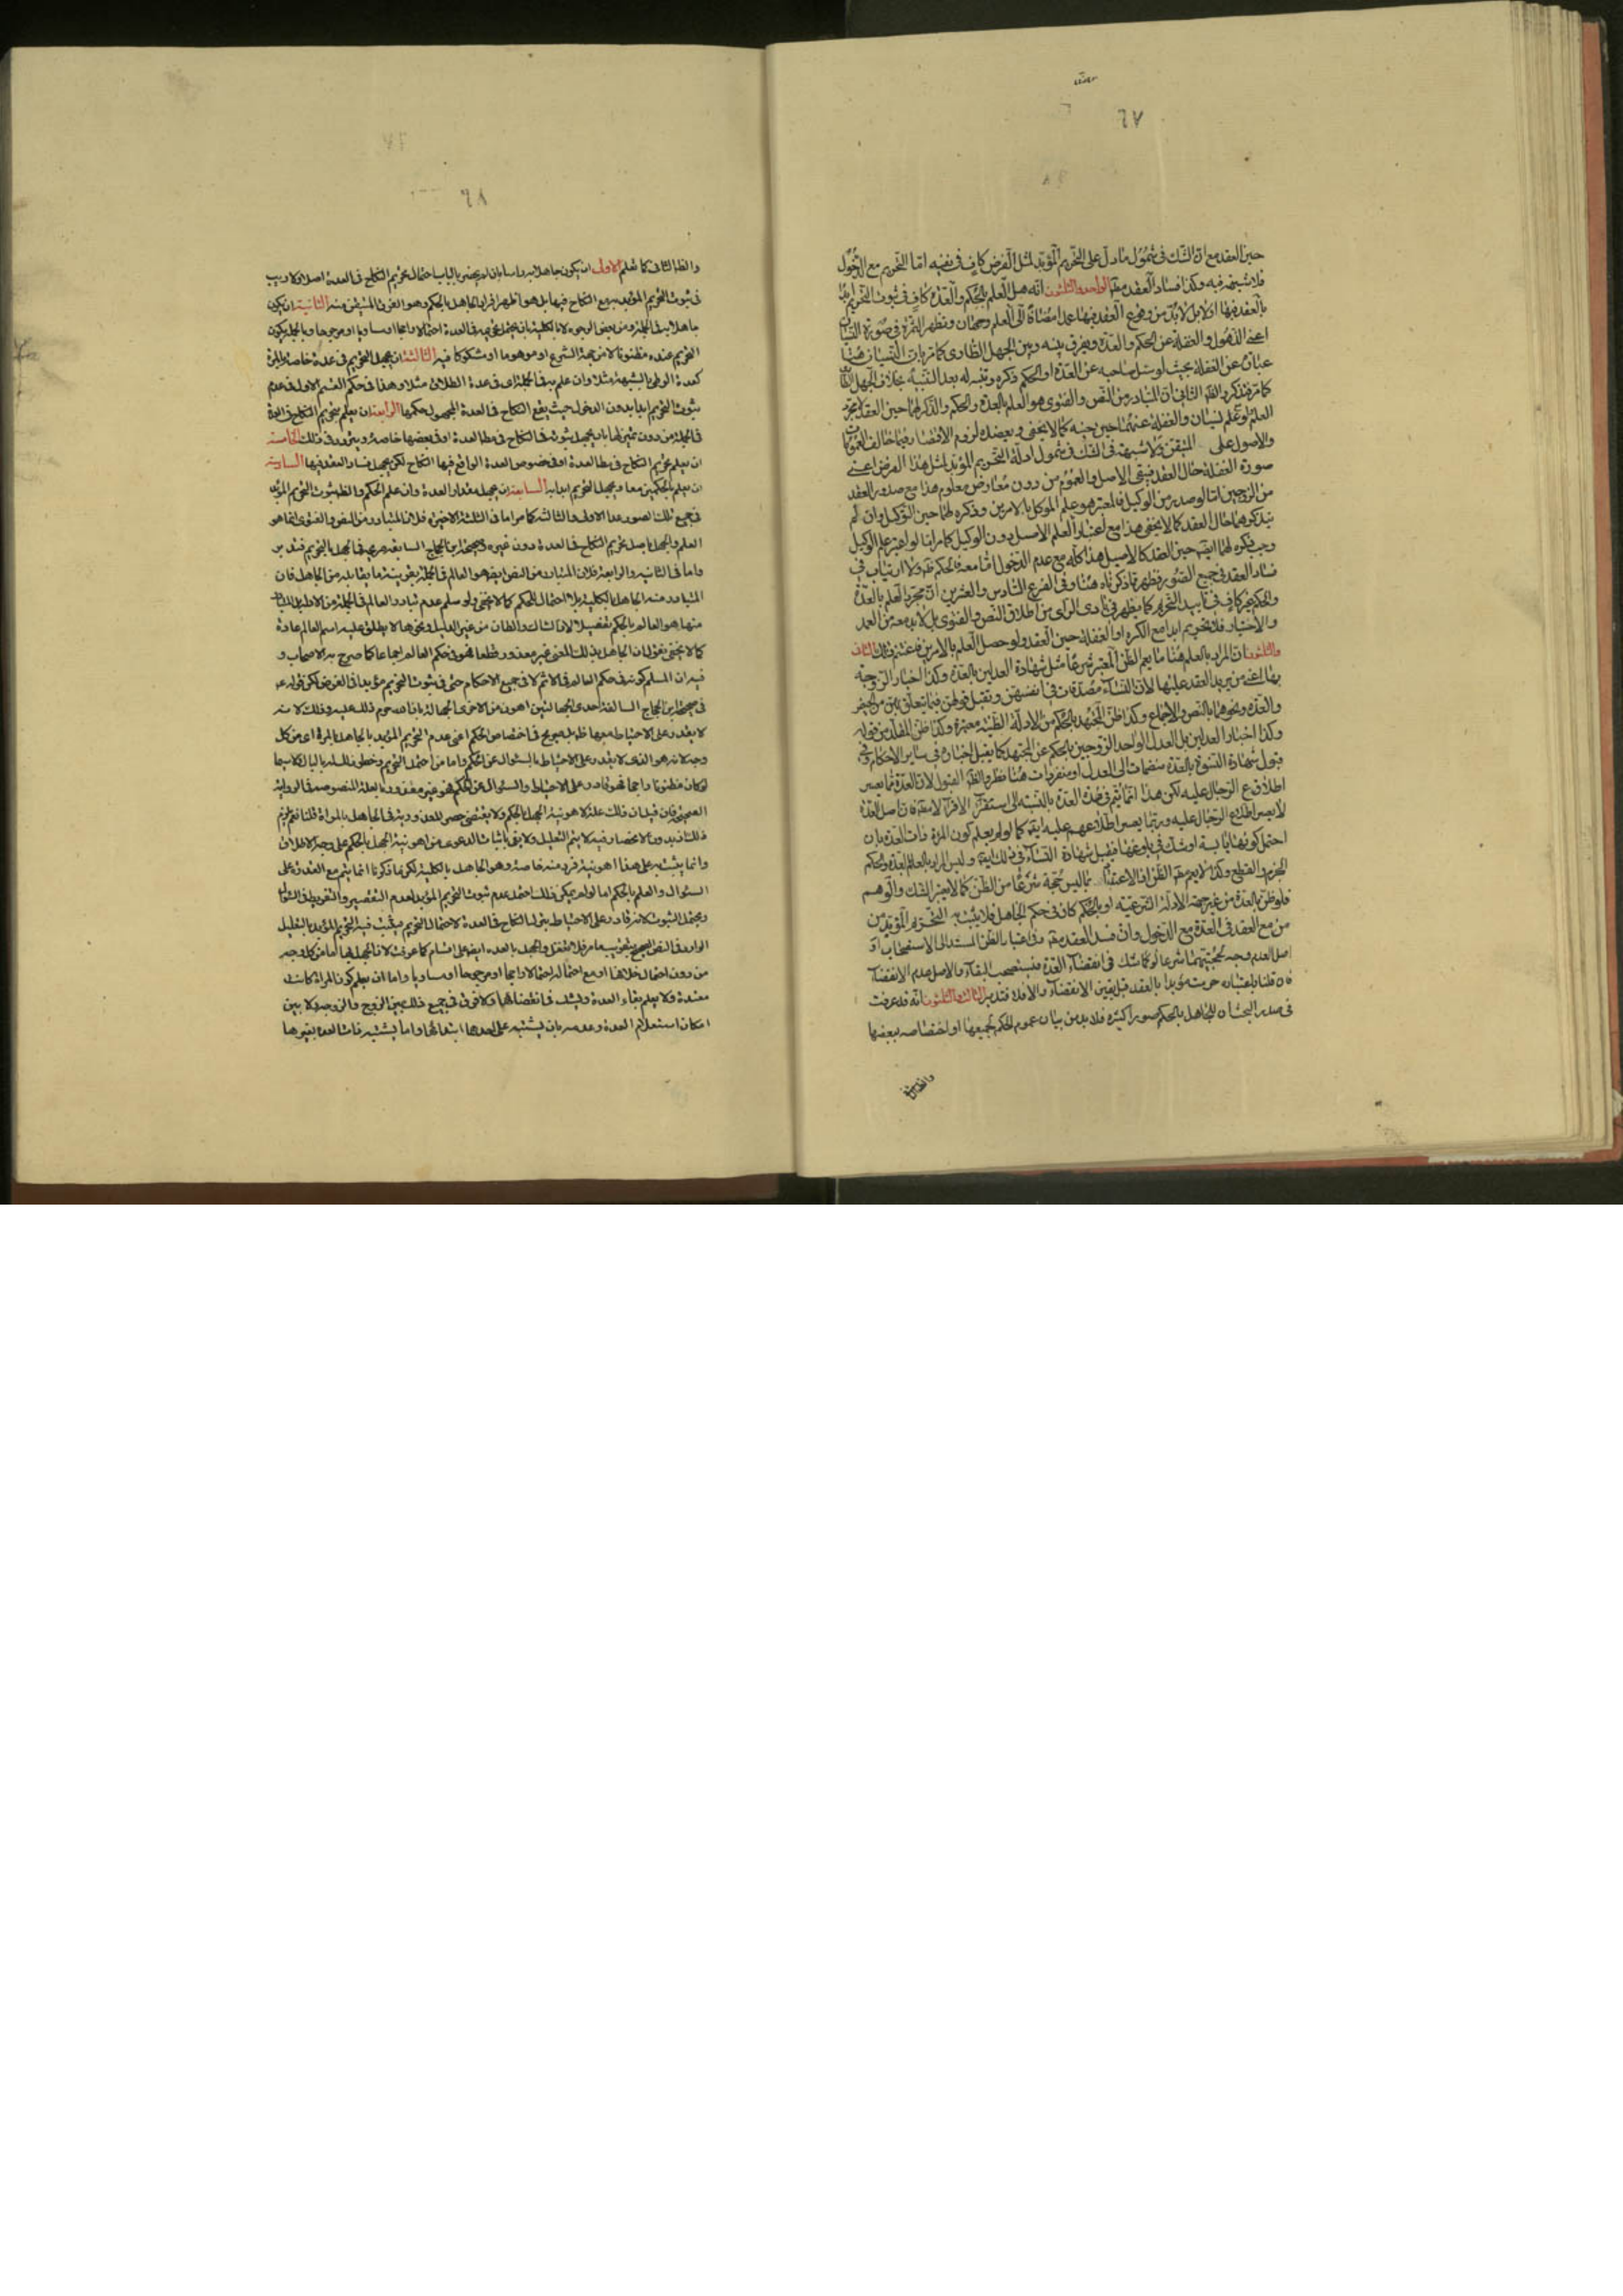 ٦٧
حين العقد مع ان الشك فى شمول ما دل على التحريم المؤبد لمثل الفرض كاف فى نفيه اما التحريم مع الدخول
فلا شبهة فيه وكذا فساد العقد مط الواحد والثلثون انه هل العلم بالحكم والعدة كاف فى ثبوت التحريم ابدا
بالعقد فيها او لا بل لا بد من وقوع العقد فيها عمدا مضافا الى العلم وجهان وتظهر الثمرة فى صورة النسيان
اعنى الذهول والغفلة عن الحكم والعدة ويفرق بينه وبين الجهل الطارى كما مر بان النسيان هنا
عبارة عن الغفلة بحيث لو سئل صاحبه عن العدة او الحكم ذكره وتنبه له بعد التنبيه بخلاف الجهل
كما مر فتذكر والظ الثانى ان المتبادر من النص والفتوى هو العلم بالعدة والحكم والذكر لهما حين العقد لا مجرد
العلم ولو علم لنسيان والغفلة عنهما حين كما لا يخفى ويعضده لزوم الاقتصار فيما خالف العمومات
والاصول على المتيقن ولا شبهة فى الشك فى شمول ادلة التحريم المؤبد لمثل هذا الفرض اعنى
صورة الغفلة حال العقد فيبقى الاصل والعموم من دون معارض معلوم هذا مع صدور العقد
من الزوجين اما لو صدر من الوكيل فالمعتبر هو علم الموكل بالامرين وذكره لهما حين التوكيل وان لم
يتذكرهما حال العقد كما لا يخفى هذا مع اعتبار العلم الاصيل دون الوكيل كما مر اما لو اعتبر علم الوكيل
وجب ذكره لهما ايضا حين العقد كالاصيل هذا كله مع عدم الدخول اما معه فالحكم ظ ولا ارتياب فى
فساد العقد فى جميع الصور فظهر مما ذكرناه هنا وفى الفرع السادس والعشرين ان مجرد العلم بالعدة
والحكم غير كاف فى تابيد التحريم كما يظهر فى بادى الراى من اطلاق النص والفتوى بل لا بد معه من العمد
والاختيار فلا تحريم ابدا مع الكره او الغفلة حين العقد ولو حصل العلم بالامرين فاغتنم ذلك الثانى
والثلثون ان المراد بالعلم هنا ما يعم الظن المعتبر شرعا مثل شهادة العدلين بالعدة وكذا اخبار الزوجة
بها اعنى من يريد العقد عليها لان النساء مصدقات فى انفسهن وتقبل قولهن فيما يتعلق بهن من الحيض
والعدة ونحوهما بالنص والاجماع وكذا ظن المجتهد بالحكم من الادلة الظنية معتبرة وكذا ظن المقلد من قوله
وكذا اخبار العدلين بل العدل الواحد الزوجين بالحكم عن المجتهد كما يقبل اخباره فى ساير الاحكام وفى
قبول شهادة النسوة بالعدة منضمات الى العدل او منفردات هنا نظر والظ القبول لان العدة مما يعسر
اطلاع الرجال عليه لكن هذا انما يتم فى ظن العدة بالنسبة الى استقراء الاقراء لا مط فان اصل العدة
لا يعسر اطلاع الرجال عليه وربما يعسر اطلاعهم عليه ايضا كما لو لم يعلم كون المراة ذات العدة بان
احتمل كونها يائسة او شك فى بلوغها فيقبل شهادة النساء فى ذلك ايضا وليس المراد بالعلم بالعدة والحكم
الجزم والقطع وكذا لا يعم مط الظن او الاعتقاد مما ليس حجة شرعا من الظن كما لا يعتبر الشك والوهم
فلو ظن بالعدة من غير جهة الادلة الشرعية او بالحكم كان فى حكم الجاهل فلا يثبت به التحريم المؤبد من
من مع العقد فى العدة مع الدخول وان فسد العقد مط وفى اعتبار الظن المستند الى الاستصحاب او
اصل العدم وجه لحجيتهما شرعا لو كما شك فى انقضاء العدة فيستصحب البقاء والاصل عدم الانقضاء
فان قلنا باعتباره حرمت مؤبدا بالعقد قبل يقين الانقضاء والا فلا فتدبر الثالث والثلثون انه قد عرفت
فى صدر البحث ان للجاهل بالحكم صورا كثيرة فلا بد من بيان عموم الحكم لجميعها او اختصاصه ببعضها
والظ الثانى
٦٨
والظ الثانى كما ستعلم الاولى ان يكون جاهلا به راسا بان لم يخطر بالبال احتمال تحريم النكاح فى العدة اصلا ولا ريب
فى ثبوت التحريم المؤبد مع النكاح فيها بل هو اظهر افراد الجاهل بالحكم وهو الفرد المتيقن منه الثانية ان يكون
جاهلا به فى الجملة ومن بعض الوجوه لا بالكلية بان يحتمل تحريمه فى العدة احتمالا راجحا او مساويا او مرجوحا وبالجملة يكون
التحريم عنده مظنونا لا من جهة الشرع او موهوما او مشكوكا فيه الثالثة ان يجهل التحريم فى عدة خاصة للمراة
كعدة الوطى بالشبهة مثلا وان علم به فى الجملة او فى عدة الطلاق مثلا وهذا فى حكم القسم الاول فى عدم
ثبوت التحريم ابدا بدون الدخول حيث يقع النكاح فى العدة المجهول حكمها الرابعة ان يعلم تحريم النكاح فى العدة
فى الجملة من دون تميز لها بان يجهل ثبوته فى النكاح فى مط العدة او فى بعضها خاصة ويتردد فى ذلك الخامسة
ان يعلم تحريم النكاح فى مط العدة او فى خصوص العدة الواقع فيها النكاح لكن يجهل فساد العقد فيها السادسة
ان يعلم بالحكمين معا ويجهل التحريم ابدا به السابعة ان يجهل مقدار العدة وان علم الحكم والظ ثبوت التحريم المؤبد
فى جميع تلك الصور عدا الاولى والثالثة كما مر اما فى الثلثة الاخيرة فلان المتبادر من النص والفتوى انما هو
العلم والجهل باصل تحريم النكاح فى العدة دون غيره وصحيحة ابن الحجاج السابقة صريحة فى الجهل بالتحريم فتدبر
واما فى الثانية والرابعة فلان المتبادر من النص ايضا هو العالم فى الجملة بقرينة ما يقابله من الجاهل فان
المتبادر منه الجاهل بالكلية بلا احتمال للحكم كما لا يخفى ولو سلم عدم تبادر العالم فى الجملة من الاطلاق
منها هو العالم بالحكم تفصيلا لان الشاك والظان من غير الدليل ونحوهما لا يطلق عليه اسم العالم عادة
كما لا يخفى نقول ان الجاهل بذلك المعنى غير معذور قطعا فهو فى حكم العالم اجماعا كما صرح به الاصحاب و
فيه ان المسلم كونه فى حكم العالم فى الاثم لا فى جميع الاحكام حتى فى ثبوت التحريم مؤبدا فى الفرض لكن قوله ع
فى صحيحة ابن الحجاج السالفة احدى الجهالتين اهون من الاخرى الجهالة بان الله حرم ذلك عليه وذلك لانه
لا يقدر على الاحتياط معها ظ بل صريح فى اختصاص الحكم اعنى عدم التحريم المؤبد بالجاهل بالمرة اى من كل
وجه لانه هو الذى لا يقدر على الاحتياط بالسؤال عن الحكم واما من احتمل التحريم وخطر ذلك له بالبال لا سيما
لو كان مظنونا راجحا فهو قادر على الاحتياط والسئوال عن الحكم فهو غير معذور بالعلة المنصوصة فى الرواية
الصحيحة فان قيل ان ذلك علة لاهونية الجهل بالحكم ولا يقتضى حصر المعذورية فى الجاهل بالمراة قلنا نعم يلزم
ذلك اذ بدون الانحصار فيه لا يتم التعليل ولا يفى باثبات الدعوى من اهونية الجهل بالحكم على وجه الاطلاق
وانما يثبت به على هذا اهونية فرد منه خاصة وهو الجاهل بالكلية لكن ما ذكرنا انما يتم مع القدرة على
السئوال والعلم بالحكم اما لو لم يمكن ذلك احتمل عدم ثبوت التحريم المؤبد لعدم التقصير والتفريط فى السئوال
ويحتمل الثبوت لانه قادر على الاحتياط بترك النكاح فى العدة لاحتمال التحريم فيثبت فيه التحريم المؤبد بالتعليل
الوارد فى النص الصحيح بتقريب ما مر فلا تغفل والجهل بالعدة ايضا على اقسام كما عرفت لان الجهل بها اما من كل وجه
من دون احتمال خلافها او مع احتماله احتمالا راجحا او مرجوحا او مساويا واما ان يعلم كون المراة كانت
معتدة ولا يعلم بقاء العدة ويشك فى انقضائها ولا فرق فى جميع ذلك بين الزوج والزوجة ولا بين
امكان استعلام العدة وعدمه بان يشتبه على احدهما ابتدائها واما يشتبه ذات العدة بغيرها